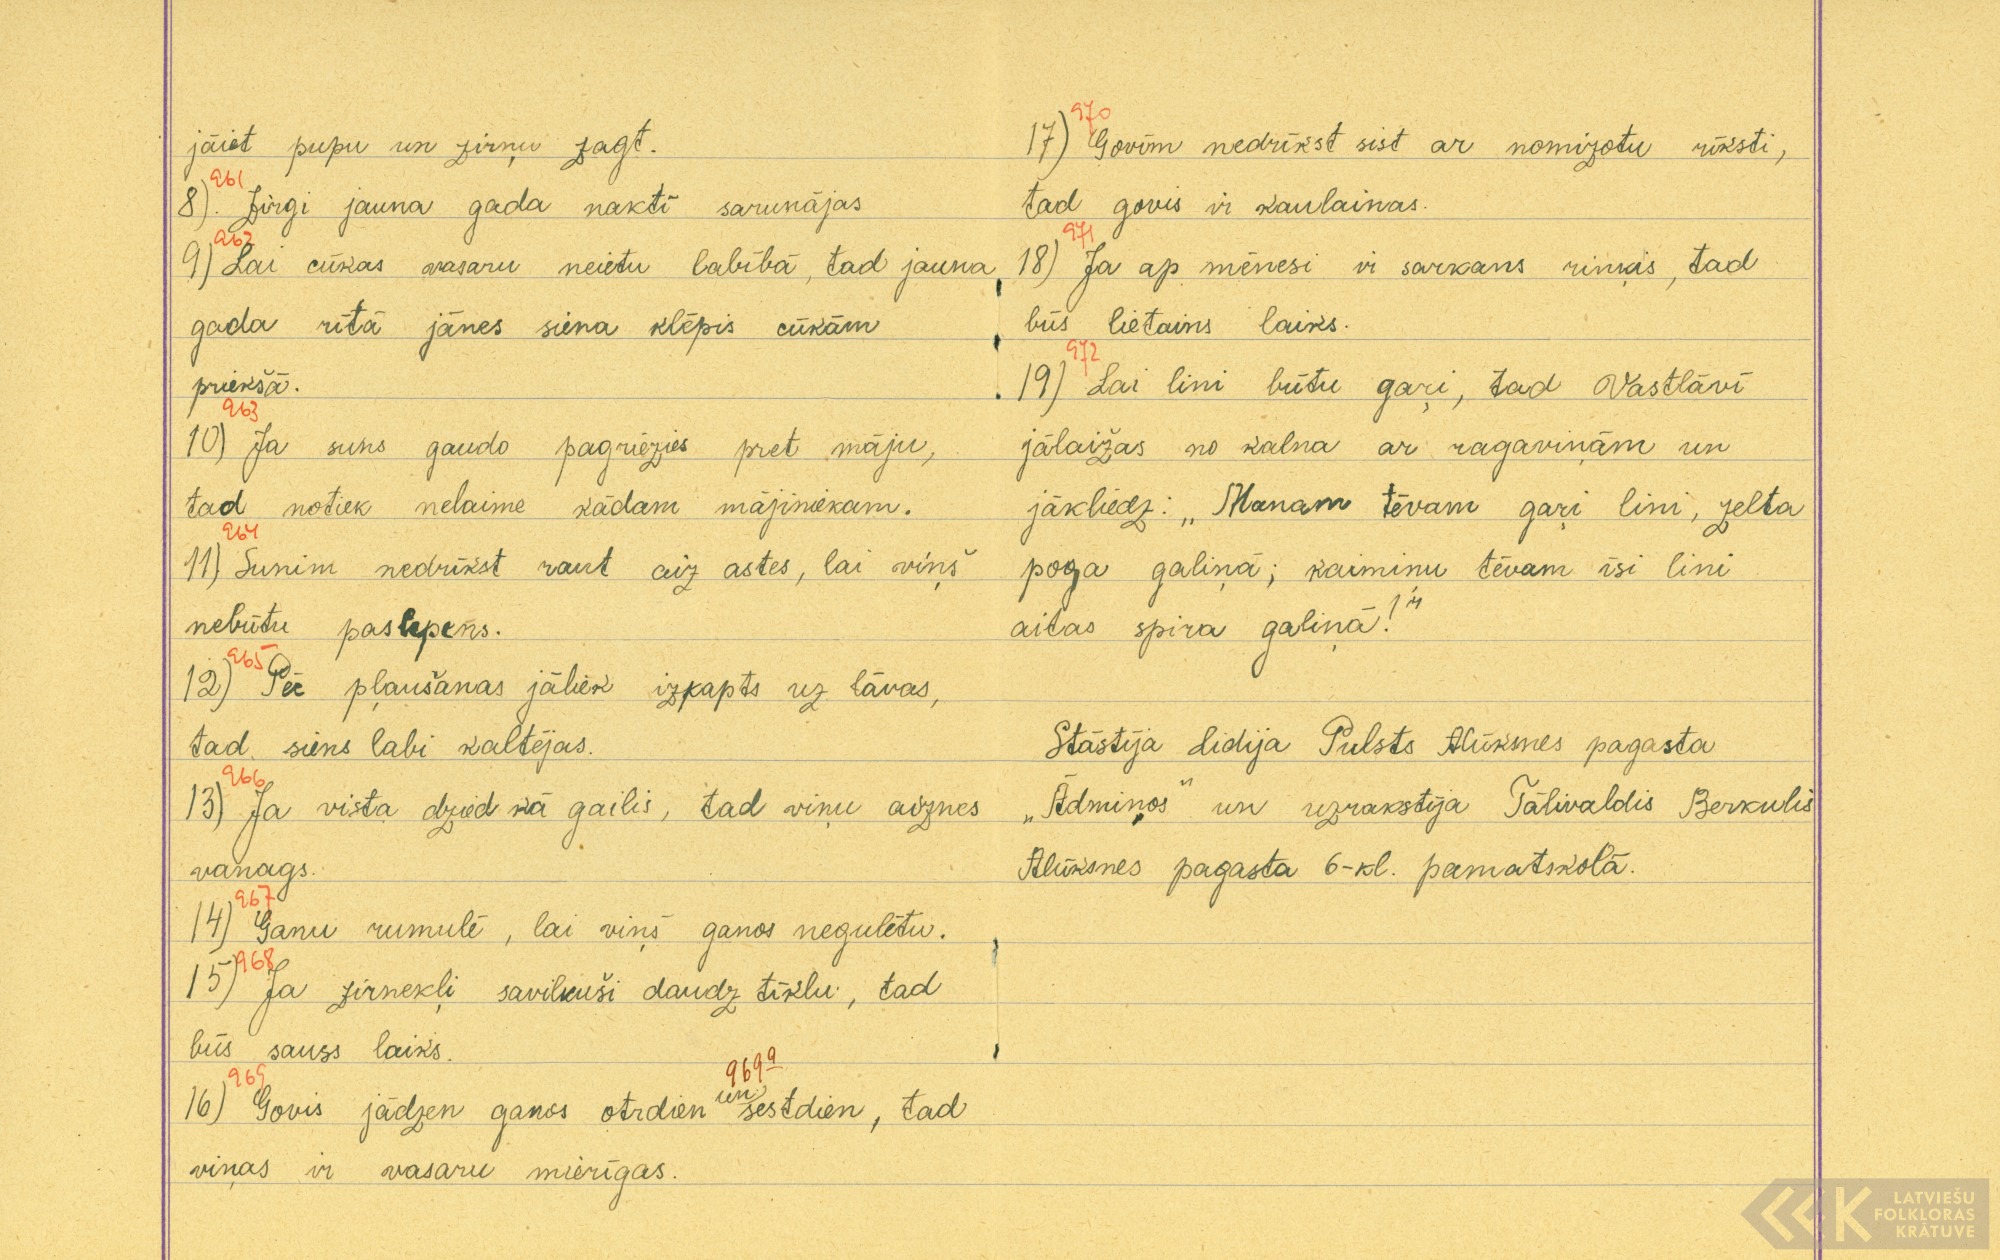 jāiet pupu un zirņu zagt.
961
8). Zirgi jauna gada naktī sarunājas
962
9) Lai cūkas vasaru neietu labībā, tad jauna
gada rītā jānes siena klēpis cūkām
priekšā.
963
10) Ja suns gaudo pagriezies pret māju,
tad notiek nelaime kādam mājiniekam.
964
11) Sunim nedrīkst raut aiz astes, lai viņš
nebūtu paslepens.
965
12) Pēc pļaušanas jāliek izkapts uz lāvas,
tad siens labi kaltējas.
966
13) Ja vista dzied kā gailis, tad viņu aiznes
vanags.
967
14) Ganu rumulē, lai viņš ganos negulētu.
968
15) Ja zirnekļi savilkuši daudz tīklu, tad
būs sauss laiks.
969 969a
16) Govis jādzen ganos otrdien un sestdien, tad
viņas ir vasaru mierīgas.
970
17) Govīm nedrīkst sist ar nomizotu rīksti,
tad govis ir kaulainas.
971
18) Ja ap mēnesi ir sarkans riņķis, tad
būs lietains laiks.
972
19) Lai lini būtu gaŗi, tad Vastlāvī
jālaižas no kalna ar ragaviņām un
jākliedz: „Manam tēvam gaŗi lini, zelta
poga galiņā; kaimiņu tēvam īsi lini
aitas spira galiņā!"
Stāstīja Lidija Pulsts Alūksnes pagasta
„Ādmiņos" un uzrakstīja Tālivaldis Berkulis
Alūksnes pagasta 6-kl. pamatskolā.
LATVIEŠU
FOLKLORAS
KRĀTUVE